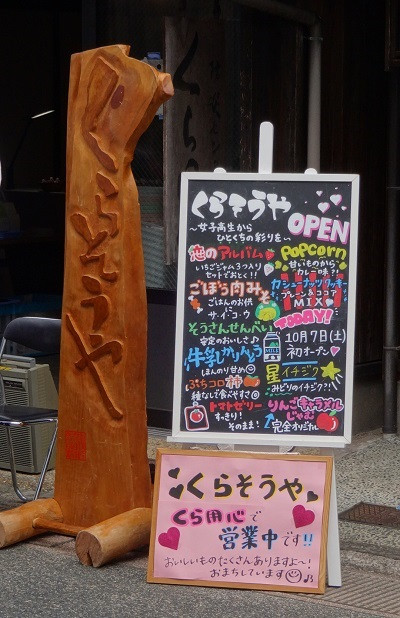 くらそうや
くらそうや
OPEN
～女子高生から
ひとくちの彩りを～
恋のアルバム
いちごジャム3つ入り
セットでおとく!!
ごぼう肉みそ
ごはんのお供
に
サ・イ・コ・ウ
そうさんせんべい
安定のおいしさ♪
牛乳かりんとう
ほんのり甘め
ぷちコロ柿
種なしで食べやすさ◎
トマトゼリー
すっきり!
そのまま!
POPCORN
甘いものから
カレー味?!
カシューナッツクッキー
プレーン&ココア
MIX
TODAY!
10月7日(土)
初オープン
MILK
星イチジク
みどりのイチジク?!
りんごキャラメル
じゃむ
完全オリジナル
くらそうや
くら用心で
営業中です!!
おいしいものたくさんありますよ～!
おまちしています